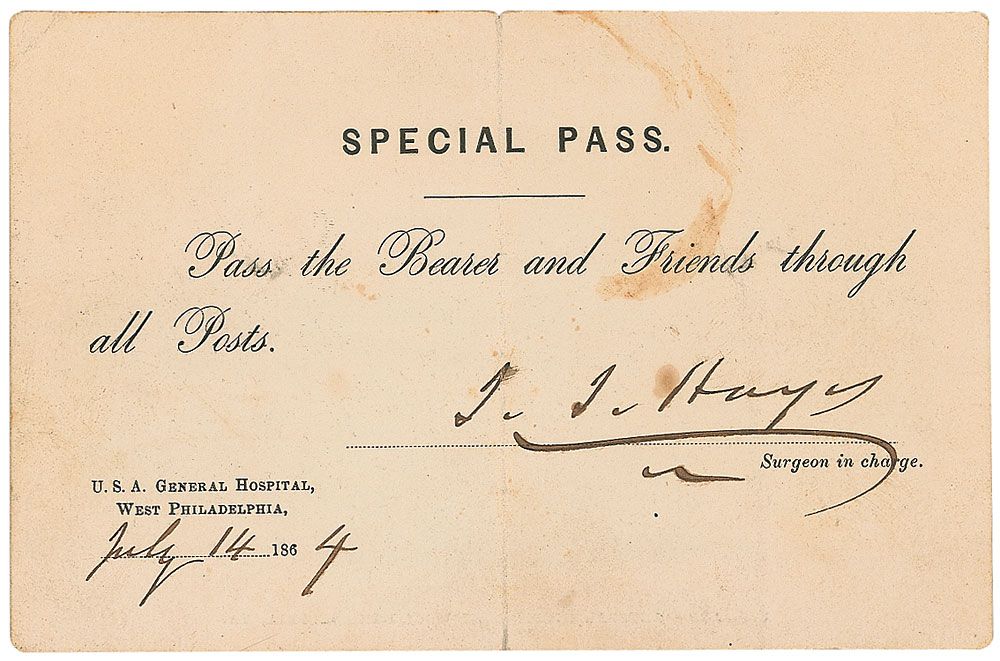 SPECIAL PASS.
Pass the Bearer and Friends through
all Posts.
I. I. Hayes
Surgeon in charge.
U. S. A. General Hospital,
West Philadelphia,
July 14 1864